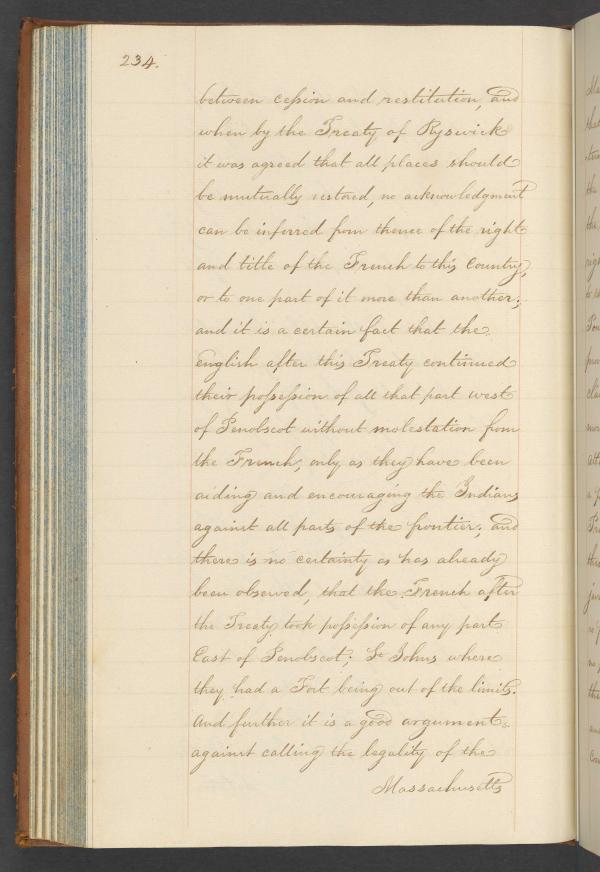 234.
between cession and restitution, and
when by the Treaty of Ryswick
it was agreed that all places should
be mutually restored, no acknowledgment
can be inferred from thence of the right
and title of the French to this Country,
or to one part of it more than another;
and it is a certain fact that the
English after this Treaty continued
their possession of all that part west
of Penobscot without molestation from
the French, only as they have been
aiding and encouraging the Indians
against all parts of the frontier; and
there is no certainty as has already
been observed, that the French after
the Treaty took possession of any part
East of Penobscot; St Johns where
they had a Fort being out of the limits.
And further it is a good argument
against calling the legality of the
Massachusetts